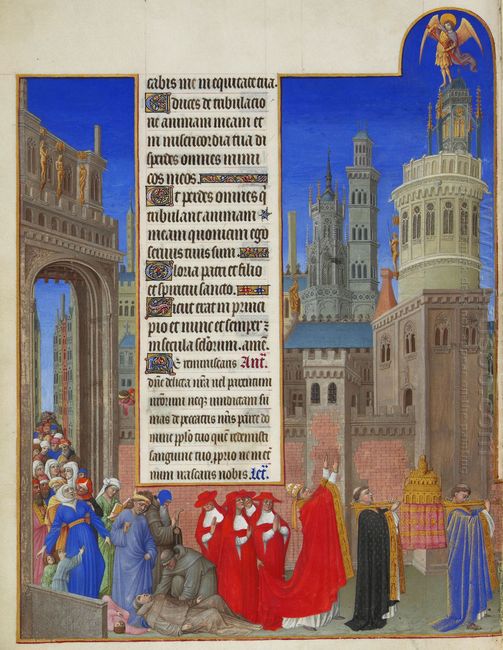 cabis me in equitate tua.
Educes de tribulacio
ne animam meam et
in misericordia tua di
sperdes omnes inimi
cos meos.
Et perdes omnes q̄
tribulant animam
meam quoniam ego
servus tuus sum.
Gloria patri et filio
et spiritui sancto.
Sicut erat in princi
pio et nunc et semper ⁊
in secula seculorum. amē.
Ne reminiscaris Ant.
dñe delicta nr̄a vel parentum
nr̄orum neqꝫ vindictam su
mas de peccatis nr̄is parce dñe
parce pplo tuo quē redemisti
sanguine tuo pprio ne in et̄
num irascaris nobis